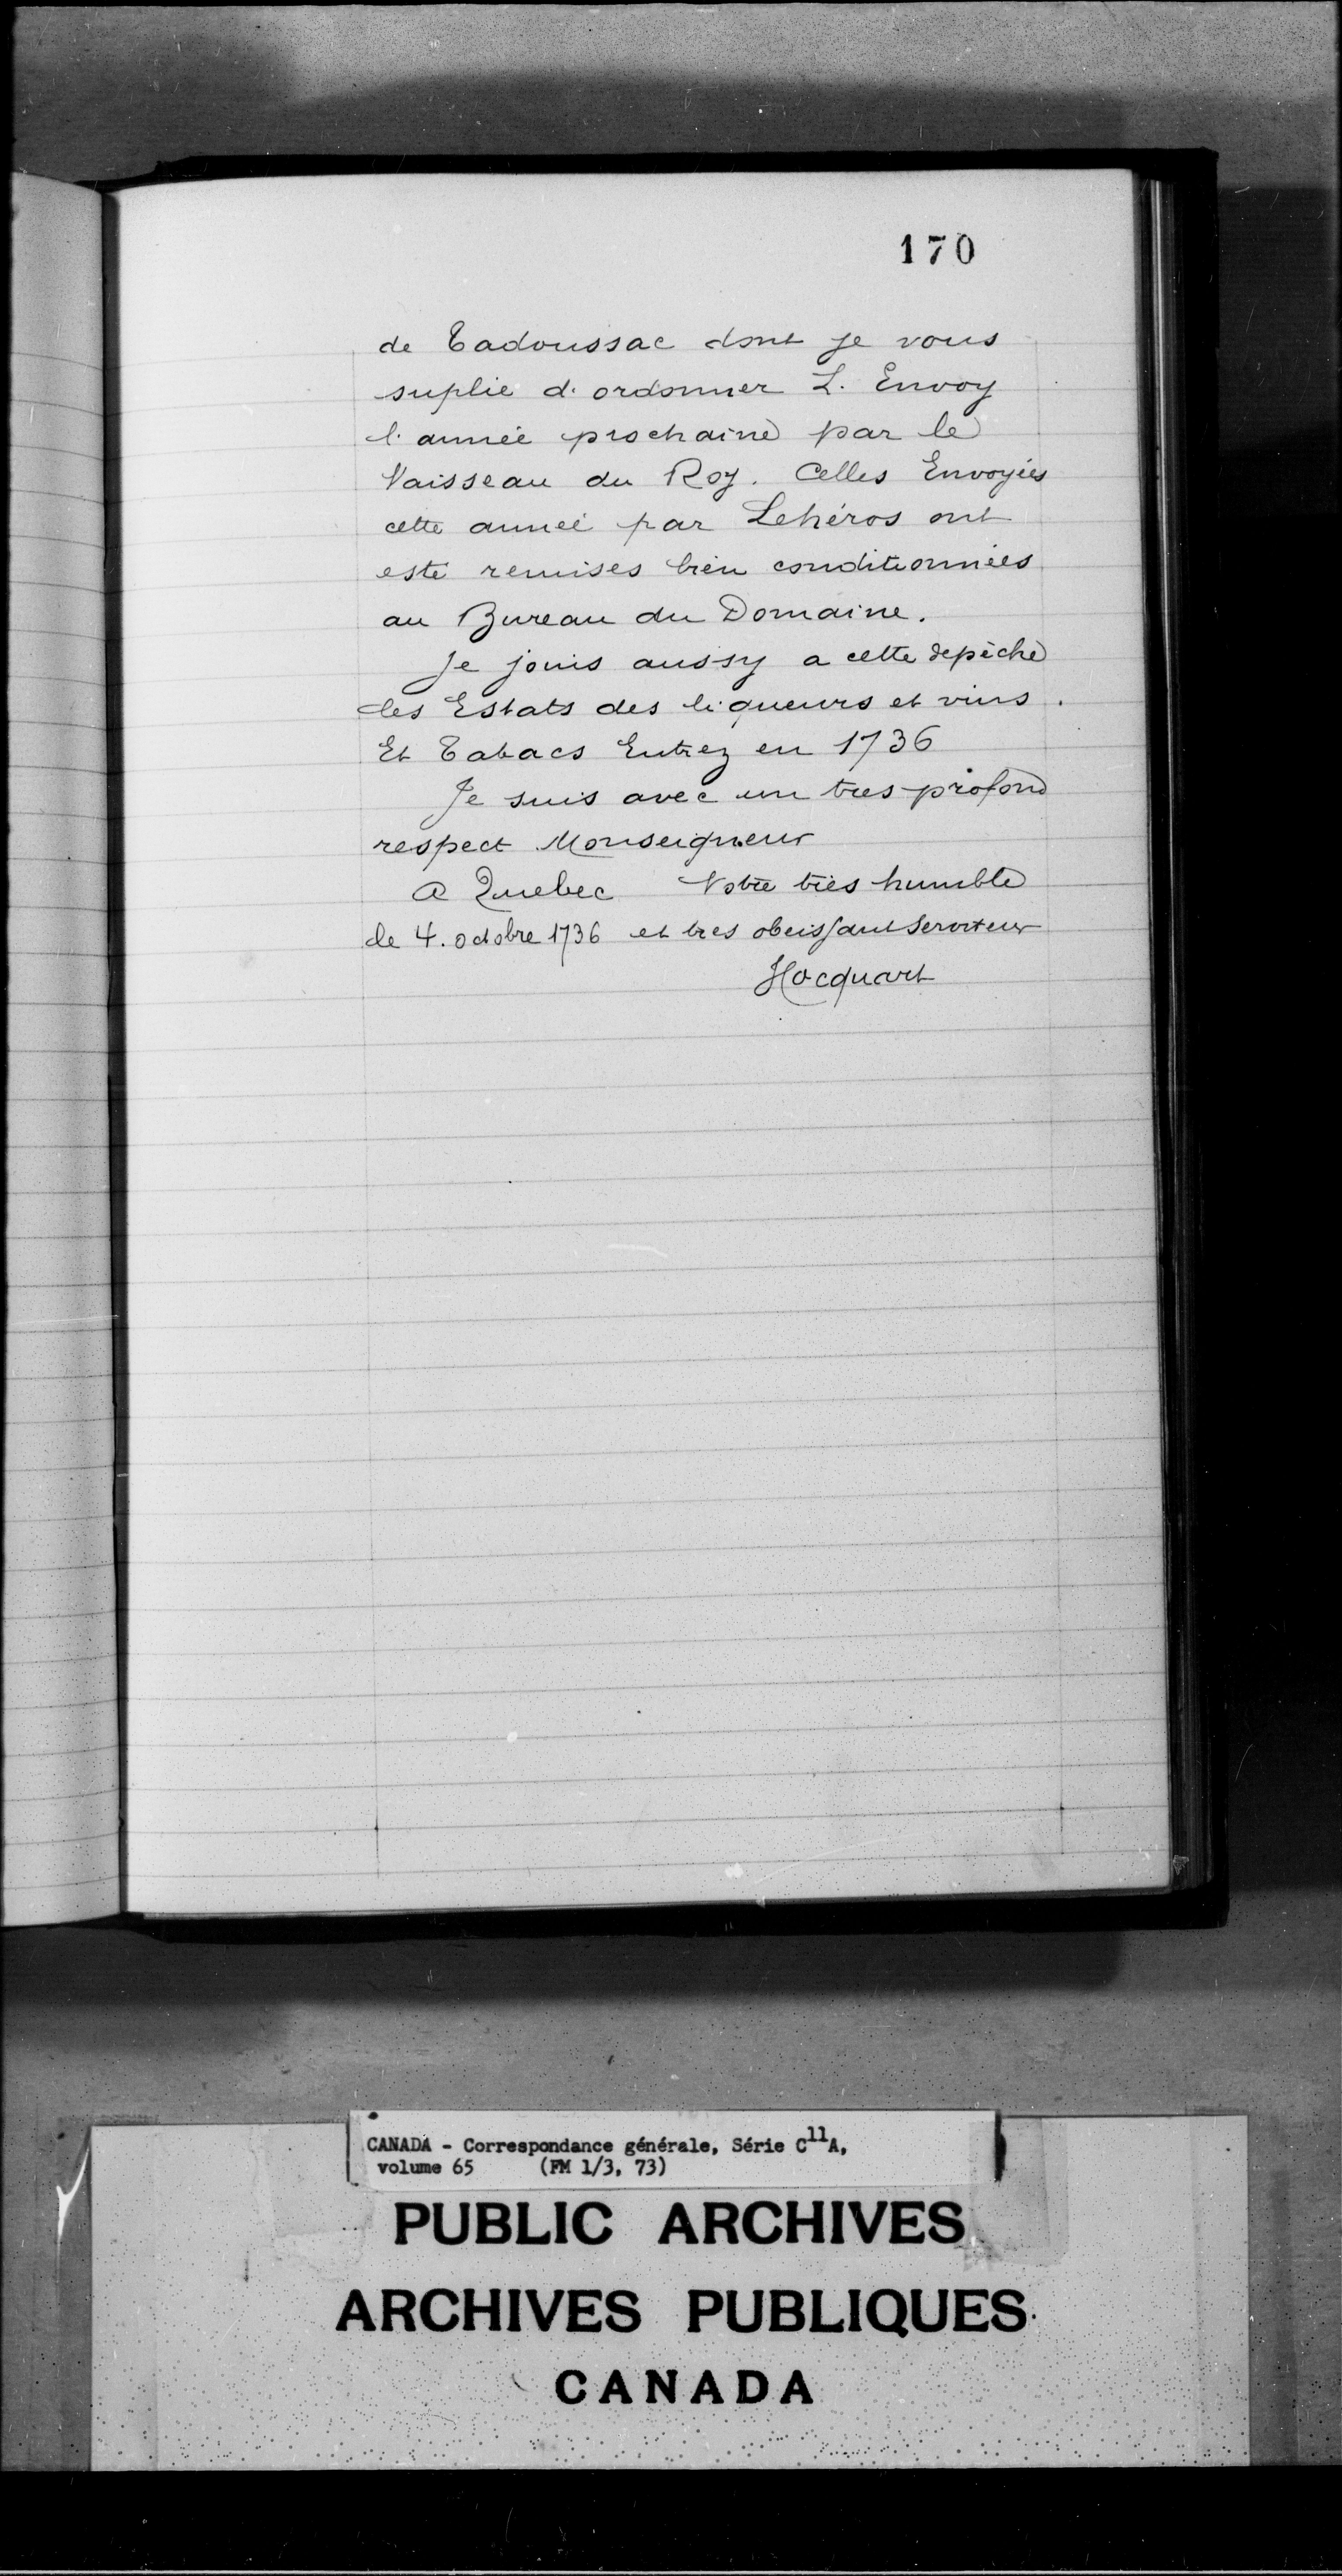 170
de Tadoussac dont je vous
suplie d'ordonner L'Envoy
l'année prochaine par le
Vaisseau du Roy. Celles Envoyées
cette année par Lehéros ont
esté remises bien conditionnées
au Bureau du Domaine.
Je joins aussy a cette depêche
les Estats des liqueurs et vins.
Et Tabacs Entrez en 1736
Je suis avec un tres profond
respect Monseigneur
A Quebec Votre très humble
le 4. octobre 1736 et tres obeissant Serviteur
Hocquart
CANADA - Correspondance générale, Série C11A,
volume 65 (FM 1/3, 73)
PUBLIC ARCHIVES
ARCHIVES PUBLIQUES
CANADA